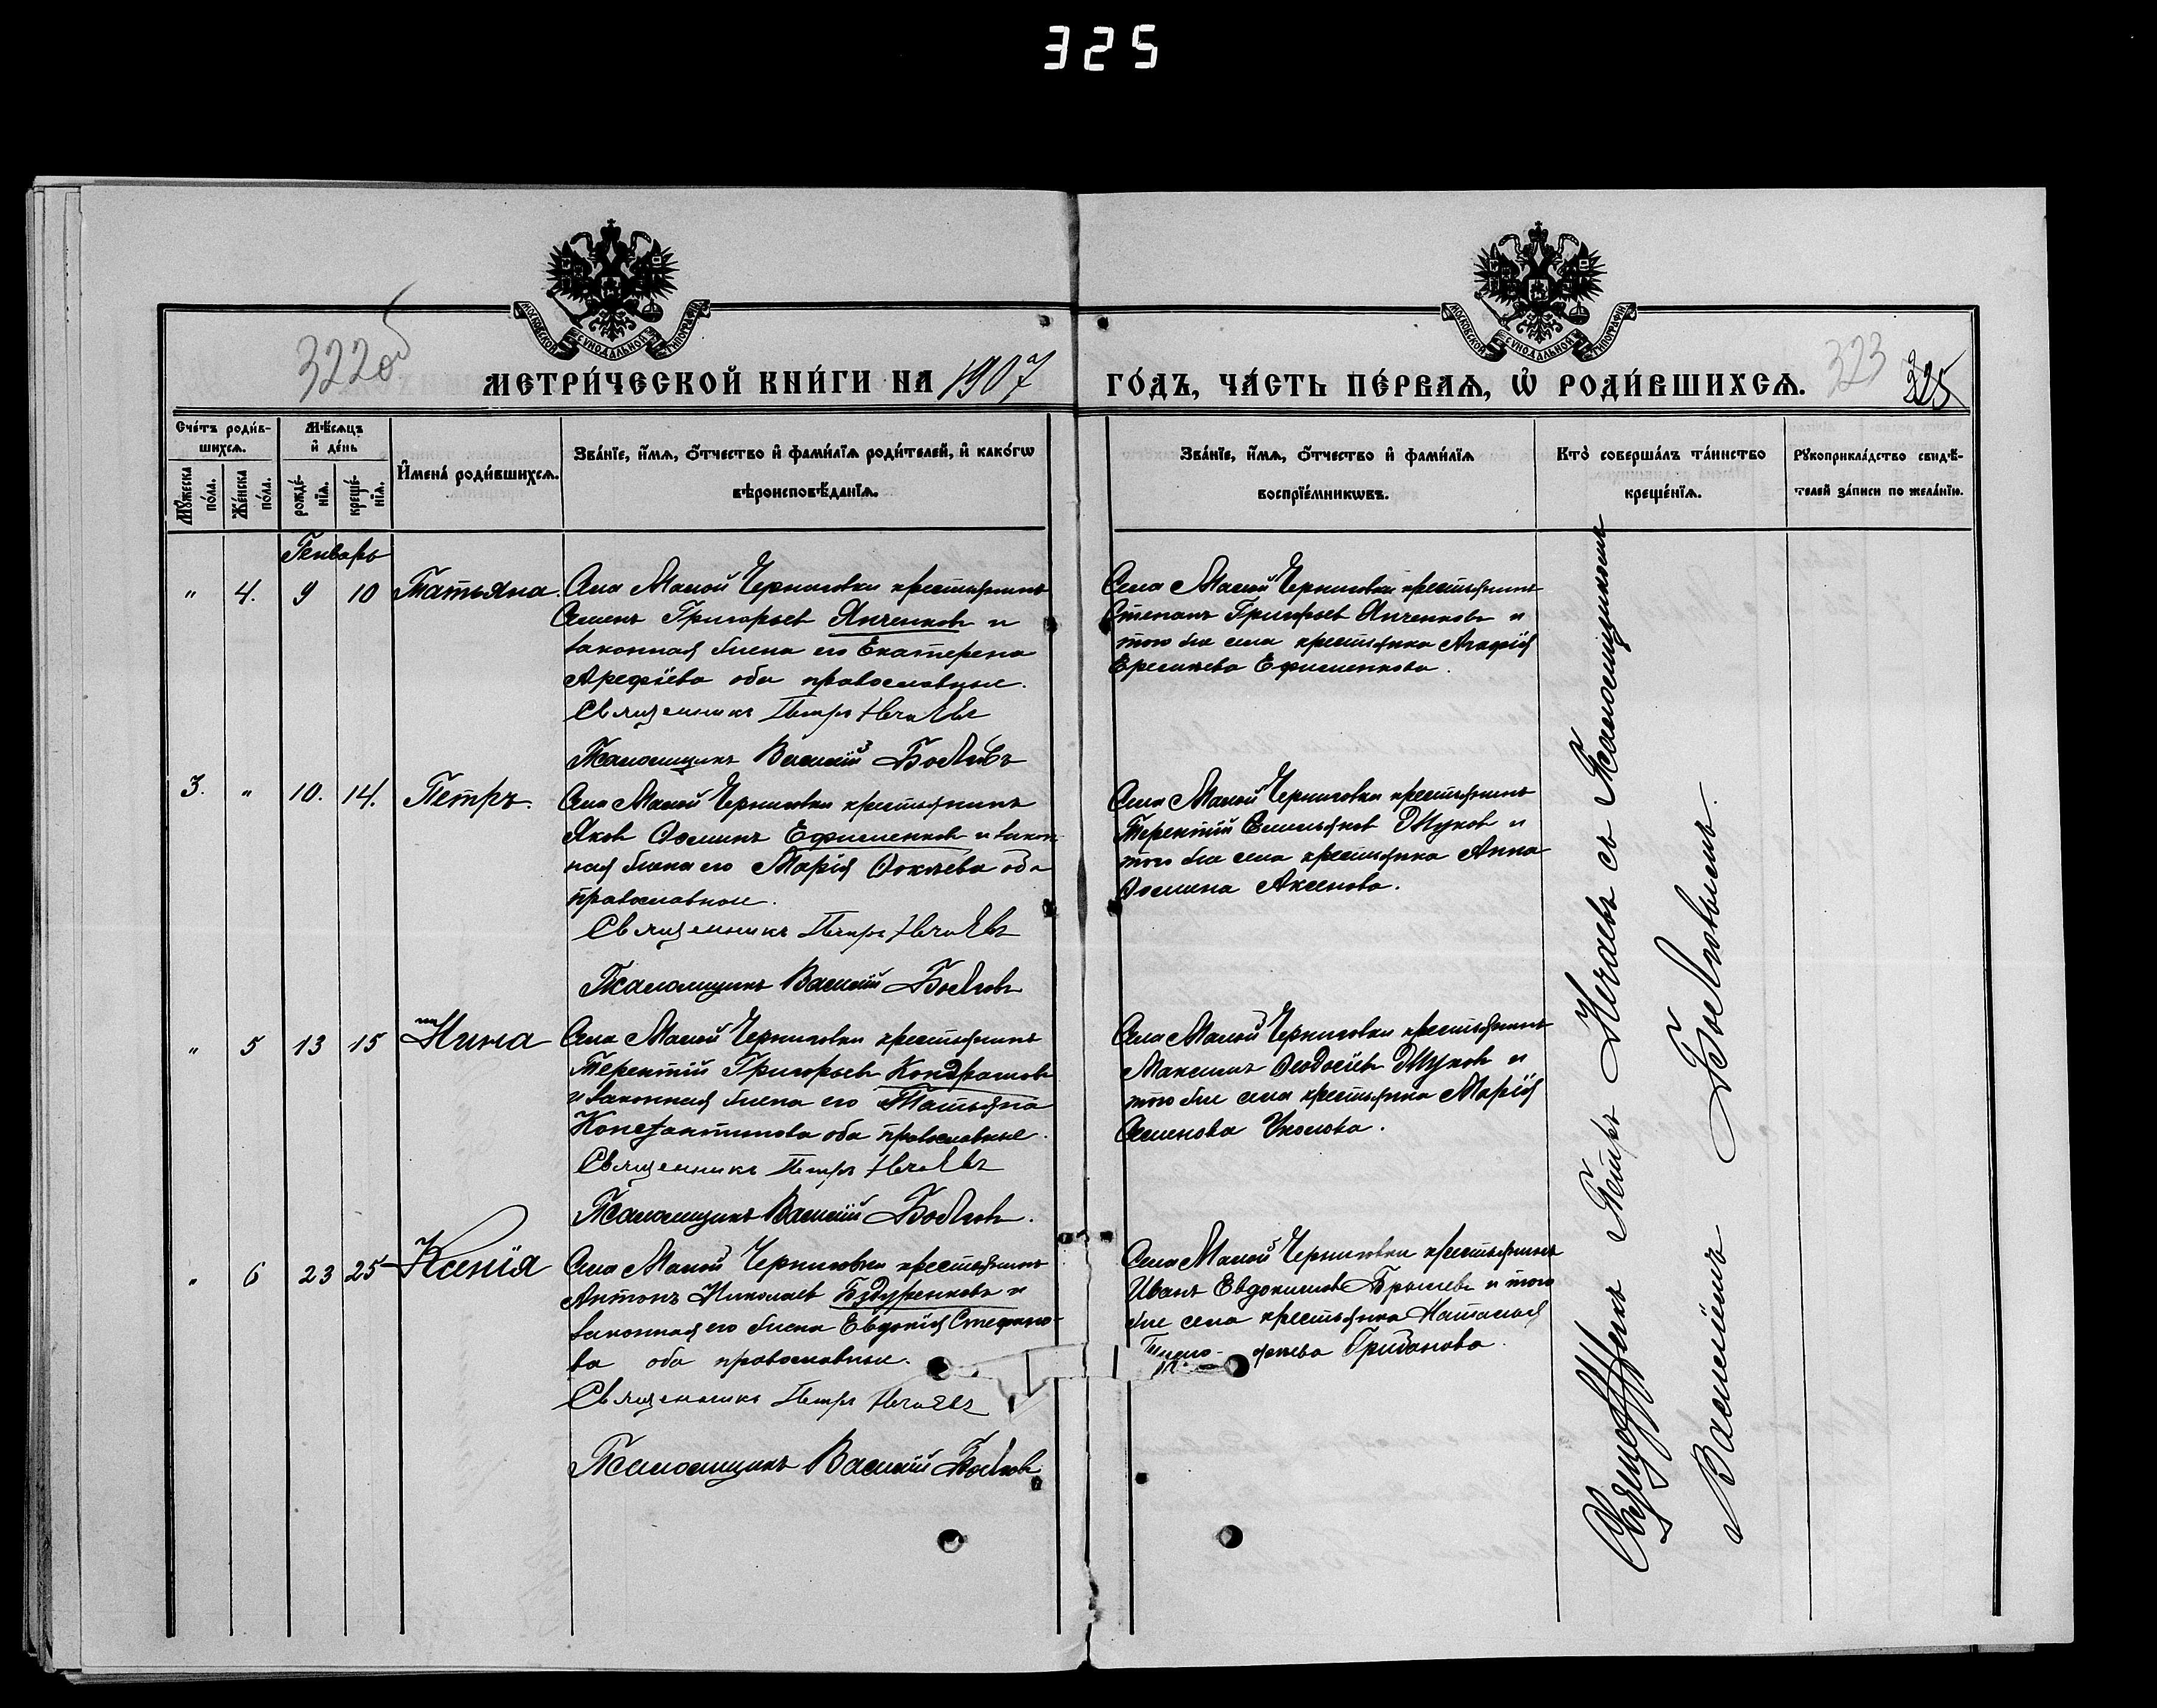 325
МОСКОВСКОЙ СѴНОДАЛЬНОЙ ТИПОГРАФІИ
МОСКОВСКОЙ СѴНОДАЛЬНОЙ ТИПОГРАФІИ
322об
МЕТРИ́ЧЕСКОЙ КНИ́ГИ НА 1907
ГО́ДЪ, ЧА́СТЬ ПЕ́РВАѦ, Ѡ҆ РОДИ́ВШИХСѦ.
323
325
Сче́тъ роди́в-
шихсѧ.
Мѣ́сѧцъ
и҆ де́нь
Мꙋ́жеска по́ла.
Же́нска по́ла.
рожде́-
нїѧ.
креще́-
нїѧ.
И҆мена̀ роди́вшихсѧ.
Зва́нїе, и҆́мѧ, ѻ҆́тчество и҆ фами́лїѧ роди́телей, и҆ како́гѡ
вѣроисповѣ́данїѧ.
Зва́нїе, и҆́мѧ, ѻ҆́тчество и҆ фами́лїѧ
воспрїе́мникѡвъ.
Кто̀ соверша́лъ та́инство
креще́нїѧ.
Рꙋкоприкла́дство свидѣ́-
телей за́писи по жела́нїю.
Генварь
" 4. 9 10 Татьяна.
Села Малой Черниговки крестьянинъ
Семенъ Григорьев Янченковъ и
законная жена его Екатерена
Арефіева оба православные.
Священникъ Петръ Нечаевъ
Псаломщикъ Василій Боялов
Села Малой Черниговки крестьянинъ
Степанъ Григорьев Янченковъ и
того же села крестьянка Агафія
Еремиева Ефименкова.
3. " 10. 14. Петръ.
Села Малой Черниговки крестьянинъ
Яков Ѳоминъ Ефименков и закон-
ная жена его Марія Ѳокиева оба
православные.
Священникъ Петръ Нечаевъ
Псаломщикъ Василій
Села Малой Черниговки крестьянинъ
Терентій Емельянов Жуков и
того же села крестьянка Анна
Ѳомина Аксенова.
" 5 13 15 Нина
Села Малой Черниговки крестьянинъ
Терентій Григорьевъ Кондрашовъ
и законная жена его Татьяна
Константинова оба православные.
Священникъ Петръ Нечаевъ
Псаломщикъ Василій
Села Малой Черниговки крестьянинъ
Максимъ Ѳеодосіев Жуков и
того же села крестьянка Марія
Семенова Уколова.
" 6 23 25 Ксенія
Села Малой Черниговки крестьянинъ
Антонъ Николаев и
законная его жена Евдокія Стефано-
ва оба православные.
Священникъ Петръ Нечаевъ
Псаломщикъ Василій
Села Малой Черниговки крестьянинъ
Иванъ Евдокимов и того
же села крестьянка Наталья
Грибанова.
Священникъ Петръ Нечаевъ съ Псаломщикомъ
Василіемъ